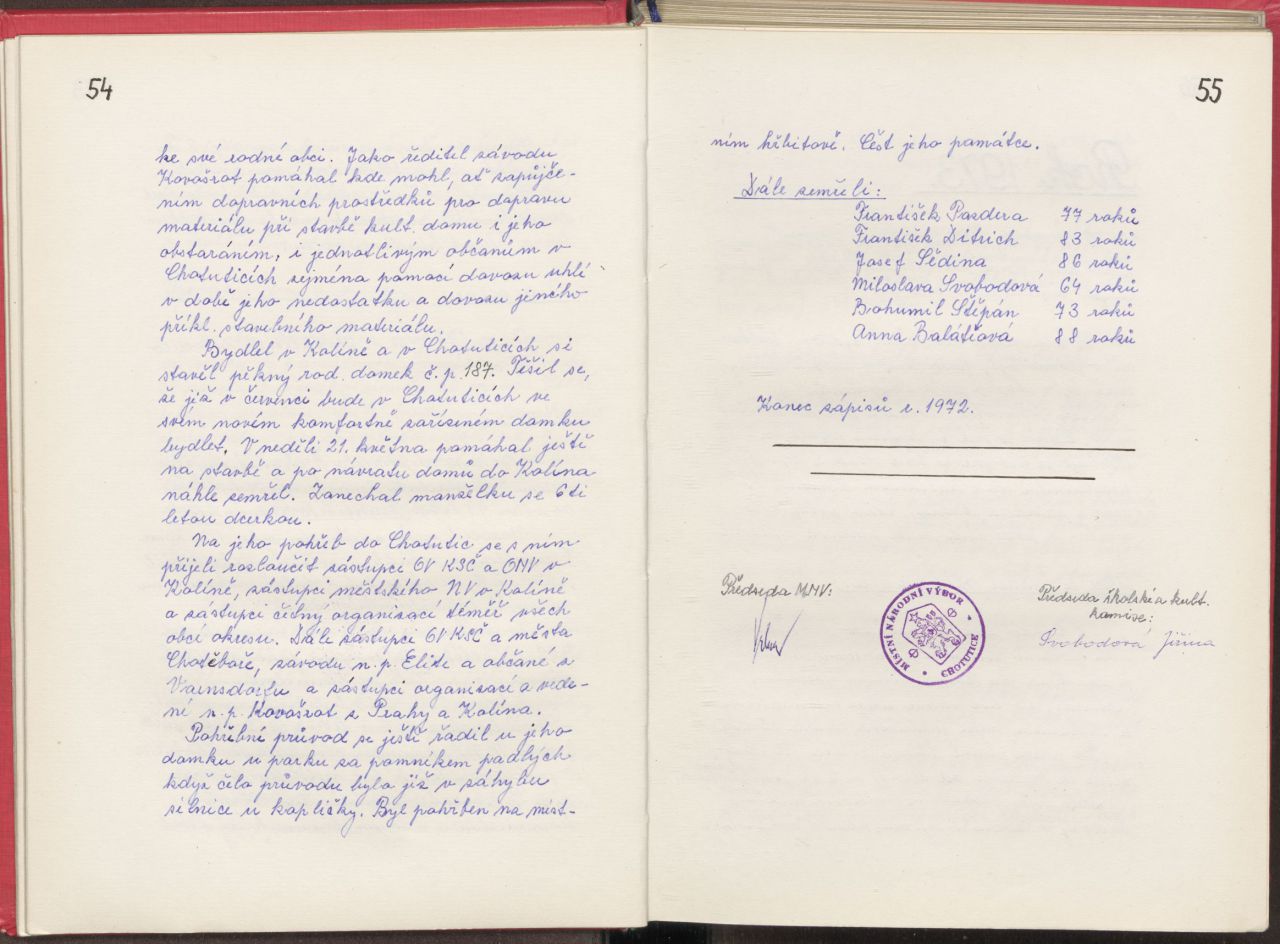 54
ke své rodné obci. Jako ředitel závodu
Kovošrot pomáhal kde mohl, ať zapůjče-
ním dopravních prostředků pro dopravu
materiálu při stavbě kult. domu i jeho
obstaráním, i jednotlivým občanům v
Chotuticích zejména pomocí dovozu uhlí
v době jeho nedostatku a dovozu jiného
příkl. stavebního materiálu.
Bydlel v Kolíně a v Chotuticích si
stavěl pěkný rod. domek č. p. 187. Těšil se,
že již v červenci bude v Chotuticích ve
svém novém komfortně zařízeném domku
bydlet. V neděli 21. května pomáhal ještě
na stavbě a po návratu domů do Kolína
náhle zemřel. Zanechal manželku se 6ti
letou dcerkou.
Na jeho pohřeb do Chotutic se s ním
přijeli rozloučit zástupci OV KSČ a ONV v
Kolíně, zástupci městského NV v Kolíně
a zástupci četných organisací téměř všech
obcí okresu. Dále zástupci OV KSČ a města
Chotěboře, závodu n. p. Elite a občané z
Varnsdorfu a zástupci organisací a vede-
ní n. p. Kovošrot z Prahy a Kolína.
Pohřební průvod se ještě řadil u jeho
domku u parku za pomníkem padlých
když čelo průvodu bylo již v záhybu
silnice u kapličky. Byl pohřben na míst-
55
ním hřbitově. Čest jeho památce.
Dále zemřeli:
František Pazdera 77 roků
František Ditrich 83 roků
Josef Sědina 86 roků
Miloslava Svobodová 64 roků
Bohumil Štěpán 73 roků
Anna Balátiová 88 roků
Konec zápisů r. 1972.
Předseda MNV:
MÍSTNÍ NÁRODNÍ VÝBOR
CHOTUTICE
Předseda školské a kult.
komise:
Svobodová Jiřina